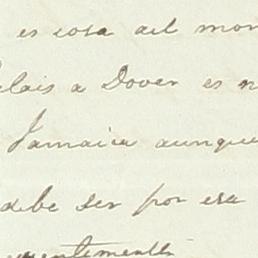 es cosa del mo
lais a Dover es n
Jamaica aunque
debe ser por esa
mentemente